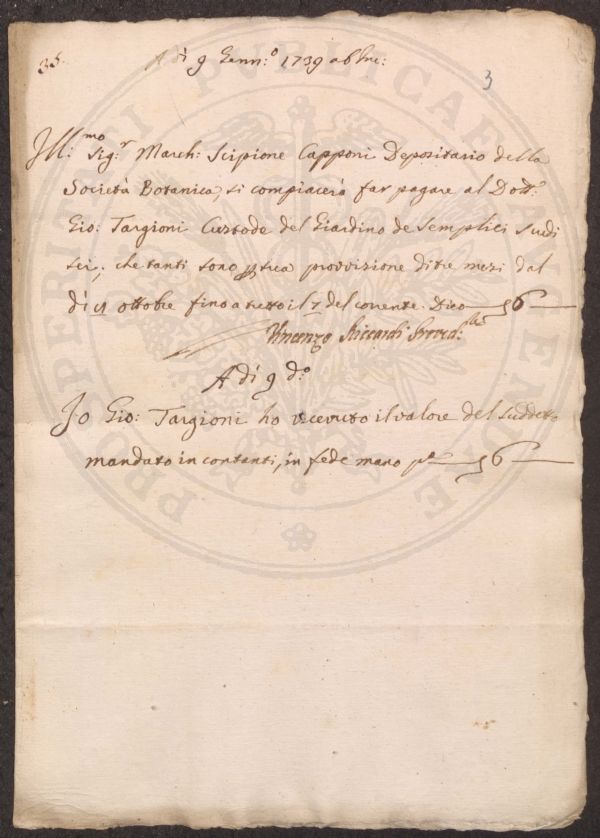 35.
A dì 9 Genn:º 1739 ab Inc:
3
Ill:mo Sig:r March: Scipione Capponi Depositario della
Società Botanica, si compiacerà far pagare al Dott:
Gio: Targioni Custode del Giardino de Semplici Scudi
sei, che tanti sono p sua provvisione di tre mesi dal
dì ottobre fino a tutto il del corrente. Dico 6
Vincenzo Riccardi Proved:
A dì 9 dº
Io Gio: Targioni ho ricevuto il valore del suddetto
mandato in contanti, in fede mano pª 6
PROSPERITATI PUBLICAE